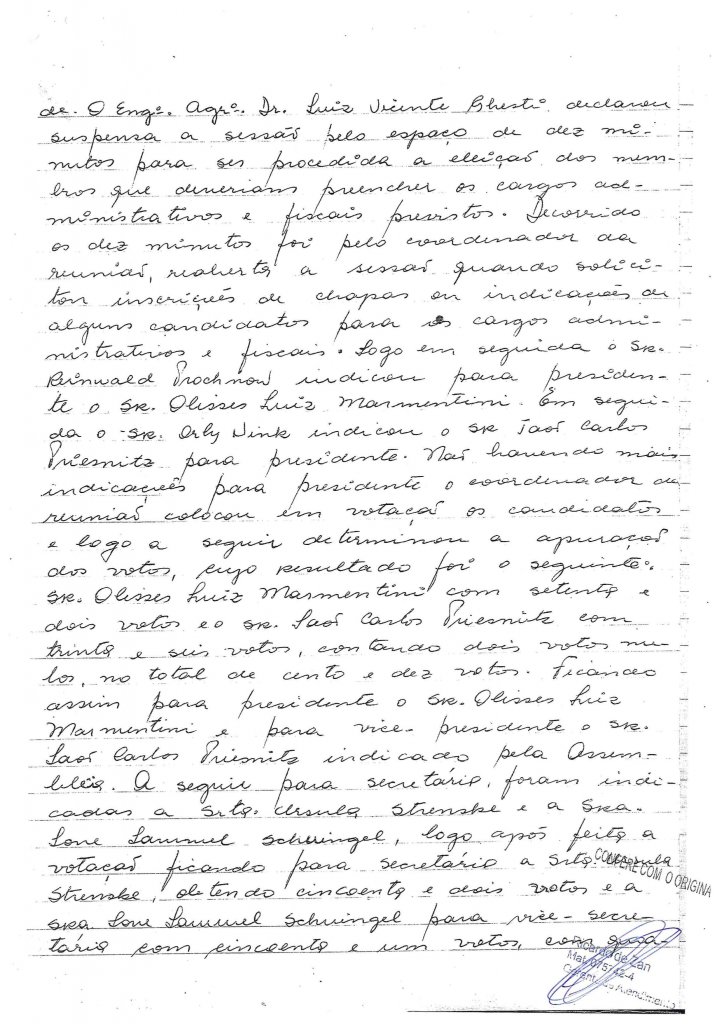 de. O Engº. Agrº. Dr. Luiz Vicente Ghesti declarou
suspensa a sessão pelo espaço de dez mi-
nutos para ser procedida a eleição dos mem-
bros que deveriam preencher os cargos ad-
ministrativos e fiscais previstos. Decorrido
os dez minutos foi pelo coordenador da
reunião, reaberta a sessão quando solici-
tou inscrições de chapas ou indicações de
alguns candidatos para os cargos admi-
nistrativos e fiscais. Logo em seguida o Sr.
Reinwald Prochnow indicou para presiden-
te o Sr. Olisses Luiz Marmentini. Em segui-
da o Sr. Orly Wink indicou o Sr João Carlos
Priesnitz para presidente. Não havendo mais
indicações para presidente o coordenador da
reunião colocou em votação os candidatos
e logo a seguir determinou a apuração
dos votos, cujo resultado foi o seguinte:
Sr. Olisses Luiz Marmentini com setenta e
dois votos e o Sr. João Carlos Priesnitz com
trinta e seis votos, contando dois votos nu-
los, no total de cento e dez votos. Ficando
assim para presidente o Sr. Olisses Luiz
Marmentini e para vice-presidente o Sr.
João Carlos Priesnitz indicado pela Assem-
bléia. A seguir para secretária, foram indi-
cadas a Srta. Ursula Strenske e a Sra.
Lone Lammel Schwingel, logo após feita a
votação ficando para secretária a Srta. Ursula
Strenske, obtendo cincoenta e dois votos e a
Sra Lone Lammel Schwingel para vice-secre-
tária com cincoenta e um votos, com
CONFERE COM O ORIGINA
de Zan
Mat. 075742-4
Gerente de Atendimento